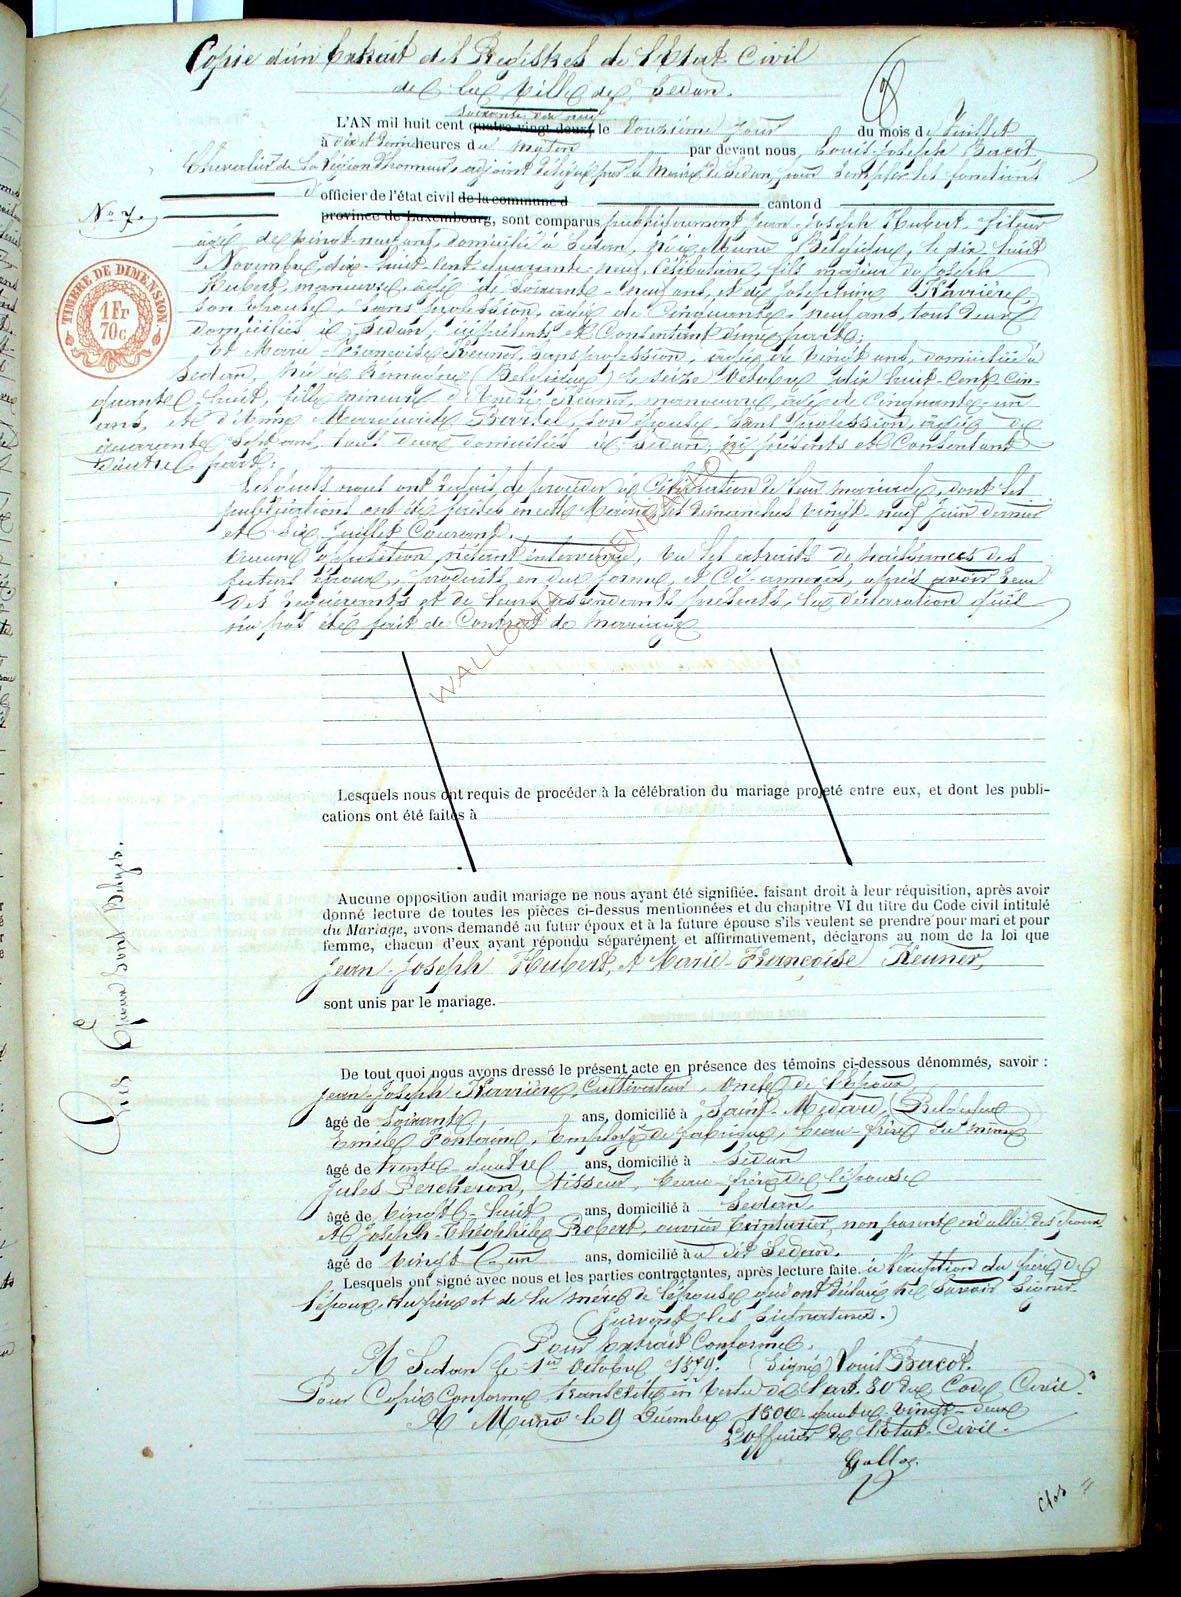 Copie d'un Extrait des Registres de l'Etat Civil
de la Ville de Sedan.
soixante dix neuf
L'AN mil huit cent quatre-vingt-deux, le douzième jour du mois de Juillet
à dix et demie heures du matin par devant nous, Louis-Joseph Bacot
Chevalier de la Légion d'honneur, adjoint délégué par le Maire de Sedan, pour remplir les fonctions
d'officier de l'état civil de la commune d canton d
No 7.
province de Luxembourg, sont comparus publiquement Jean-Joseph Hubert, fileur
âgé de vingt-neuf ans, domicilié à Sedan, né à Muno, Belgique, le dix huit
Novembre dix-huit-cent quarante-neuf, célibataire, fils majeur de Joseph
Hubert, manœuvre, âgé de soixante-neuf ans, et de Joséphine Harrière,
son épouse, sans profession, âgée de cinquante-neuf ans, tous deux
domiciliés à Sedan, ici présents et consentant d'une part;
TIMBRE DE DIMENSION
1 Fr
70c
Et Marie-Françoise Keuner, sans profession, âgée de vingt ans, domiciliée à
Sedan, née à (Belgique) le seize Octobre dix huit-cent cin-
quante huit, fille mineure d'André Keuner, manœuvre, âgé de cinquante-un
ans, et d'Anne Marguerite Bartel, son épouse, sans profession, âgée de
quarante sept ans, tous deux domiciliés à Sedan, ici présents et consentant
d'autre part;
Lesquels nous ont requis de procéder à la célébration de leur mariage, dont les
publications ont été faites en cette Mairie les dimanches vingt-neuf juin dernier
et six Juillet courant.
Aucune opposition n'étant intervenue, vu les extraits de naissances des
futurs époux, produits en due forme, et ci-annexés, après avoir reçu
des requérants et de leurs ascendants présents, la déclaration qu'il
n'a pas été fait de contrat de mariage
WALLONIA GENEALOR
Lesquels nous ont requis de procéder à la célébration du mariage projeté entre eux, et dont les publi-
cations ont été faites à
Aucune opposition audit mariage ne nous ayant été signifiée. faisant droit à leur réquisition, après avoir
donné lecture de toutes les pièces ci-dessus mentionnées et du chapitre VI du titre du Code civil intitulé
du Mariage, avons demandé au futur époux et à la future épouse s'ils veulent se prendre pour mari et pour
femme, chacun d'eux ayant répondu séparément et affirmativement, déclarons au nom de la loi que
Jean-Joseph Hubert, et Marie-Françoise Keuner,
sont unis par le mariage.
De tout quoi nous avons dressé le présent acte en présence des témoins ci-dessous dénommés, savoir :
Jean-Joseph Harrière, Cultivateur, oncle de l'époux,
âgé de soixante, ans, domicilié à Saint-Médard, (Belgique)
Emile Fontaine, employé de fabrique, beau-frère du même
âgé de trente-quatre ans, domicilié à Sedan
Jules Percheron, tisseur, beau-frère de l'épouse
âgé de vingt-huit ans, domicilié à Sedan,
et Joseph-Théophile Robert, ouvrier teinturier, non parent ni allié des époux
âgé de vingt-un ans, domicilié à au dit Sedan.
Lesquels ont signé avec nous et les parties contractantes, après lecture faite. à l'exception du père de
l'époux, du père et de la mère de l'épouse qui ont déclaré ne savoir signer
(Suivent les signatures.)
Pour extrait conforme.
A Sedan le 1er Octobre 1879. (Signé) Louis Bacot.
Pour Copie Conforme transcrite en vertu de l'art. 80 du Code Civil.
A Muno le 9 Décembre 1800-quatre-vingt-deux
L'officier de l'état-Civil.
Clos